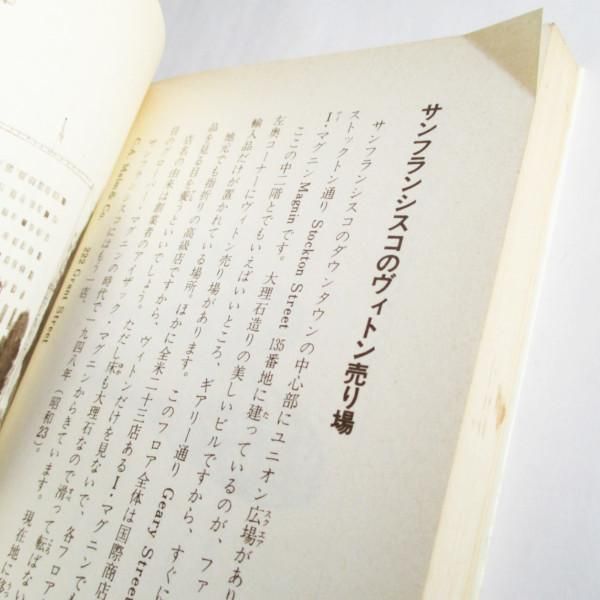 サンフランシスコのヴィトン売り場
サンフランシスコのダウンタウンの中心部にユニオン広場があり
ストックトン通り Stockton Street 135番地に建っているのが、
I・マグニン Magnin です。大理石造りの美しいビルですから、すぐに
ここの中二階とでもいえばいいところ、ギアリー通り Geary Street
左奥コーナーにヴィトン売り場があります。このフロア全体は国際商店
輸入品だけが置かれている場所。ほかに全米二十三店あるI・マグニンでも
地元でも指折りの高級店ですから、ヴィトンだけを見ないで、各フロア
品を見る目を養うといいでしょう。ただし床も大理石なので滑って転ばない
店名の由来は創業者のアイザック・マグニンからきています。現在地に移
目のグローバー・マグニンの時代で、一九四八年（昭和23）。
サンフランシスコにはもう一店、
222 Grant Street